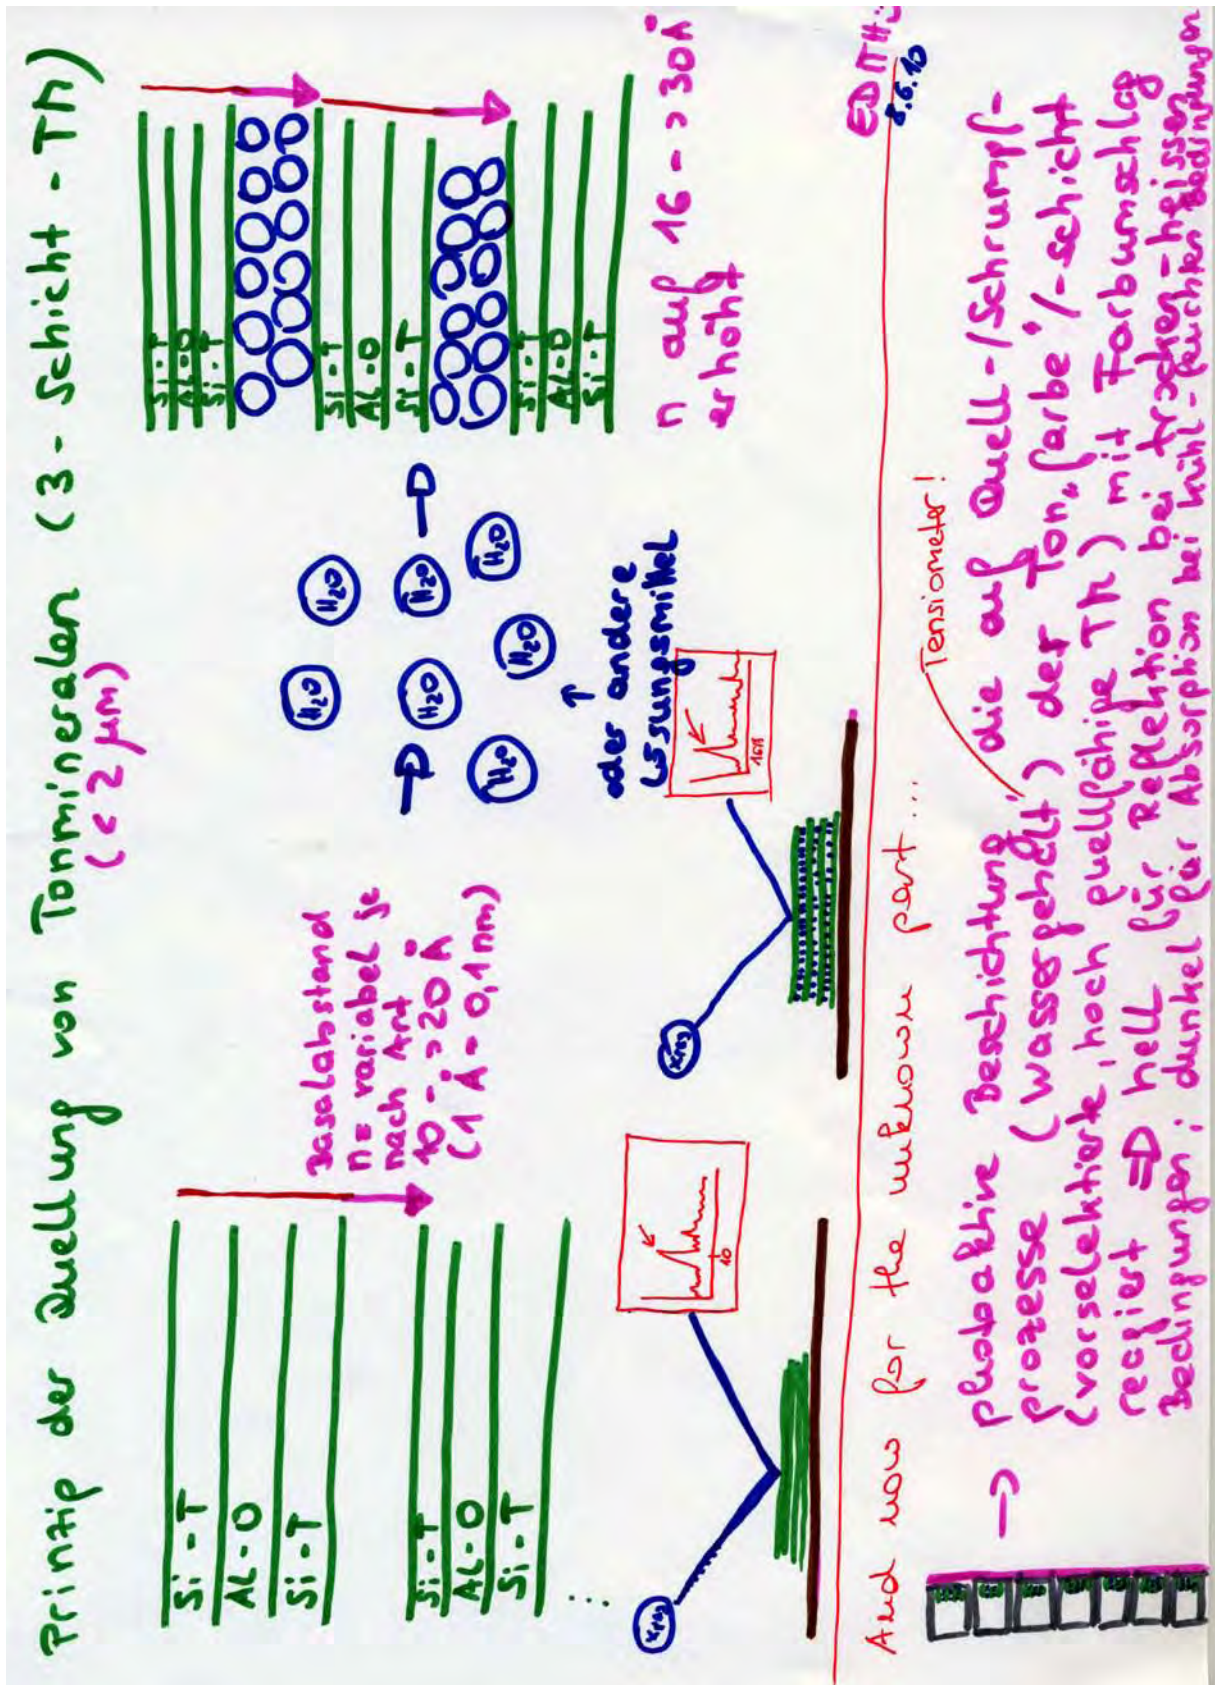 Prinzip der Quellung von Tonmineralen (3-Schicht-TM)
(< 2 µm)
Si-T
AL-O
Si-T
Si-T
AL-O
Si-T
...
Basalabstand
n= variabel je
nach Art
10 -> 20 Å
(1 Å = 0,1 nm)
H2O
H2O
H2O
H2O
H2O
H2O
H2O
oder andere
Lösungsmittel
Si-T
AL-O
Si-T
Si-T
AL-O
Si-T
Si-T
AL-O
Si-T
n auf 16 -> 30Å
erhöht
xray
10
xray
16Å
EDITH:
8.6.10
And now for the unknown part...
Tensiometer!
photoaktive Beschichtung, die auf Quell-/Schrumpf-
prozesse (Wassergehalt) der Ton„farbe"/-schicht
(vorselektierte, hoch quellfähige TM) mit Farbumschlag
reagiert => hell für Reflektion bei trocken-heissen
Bedingungen; dunkel für Absorption bei kühl-feuchten Bedingungen